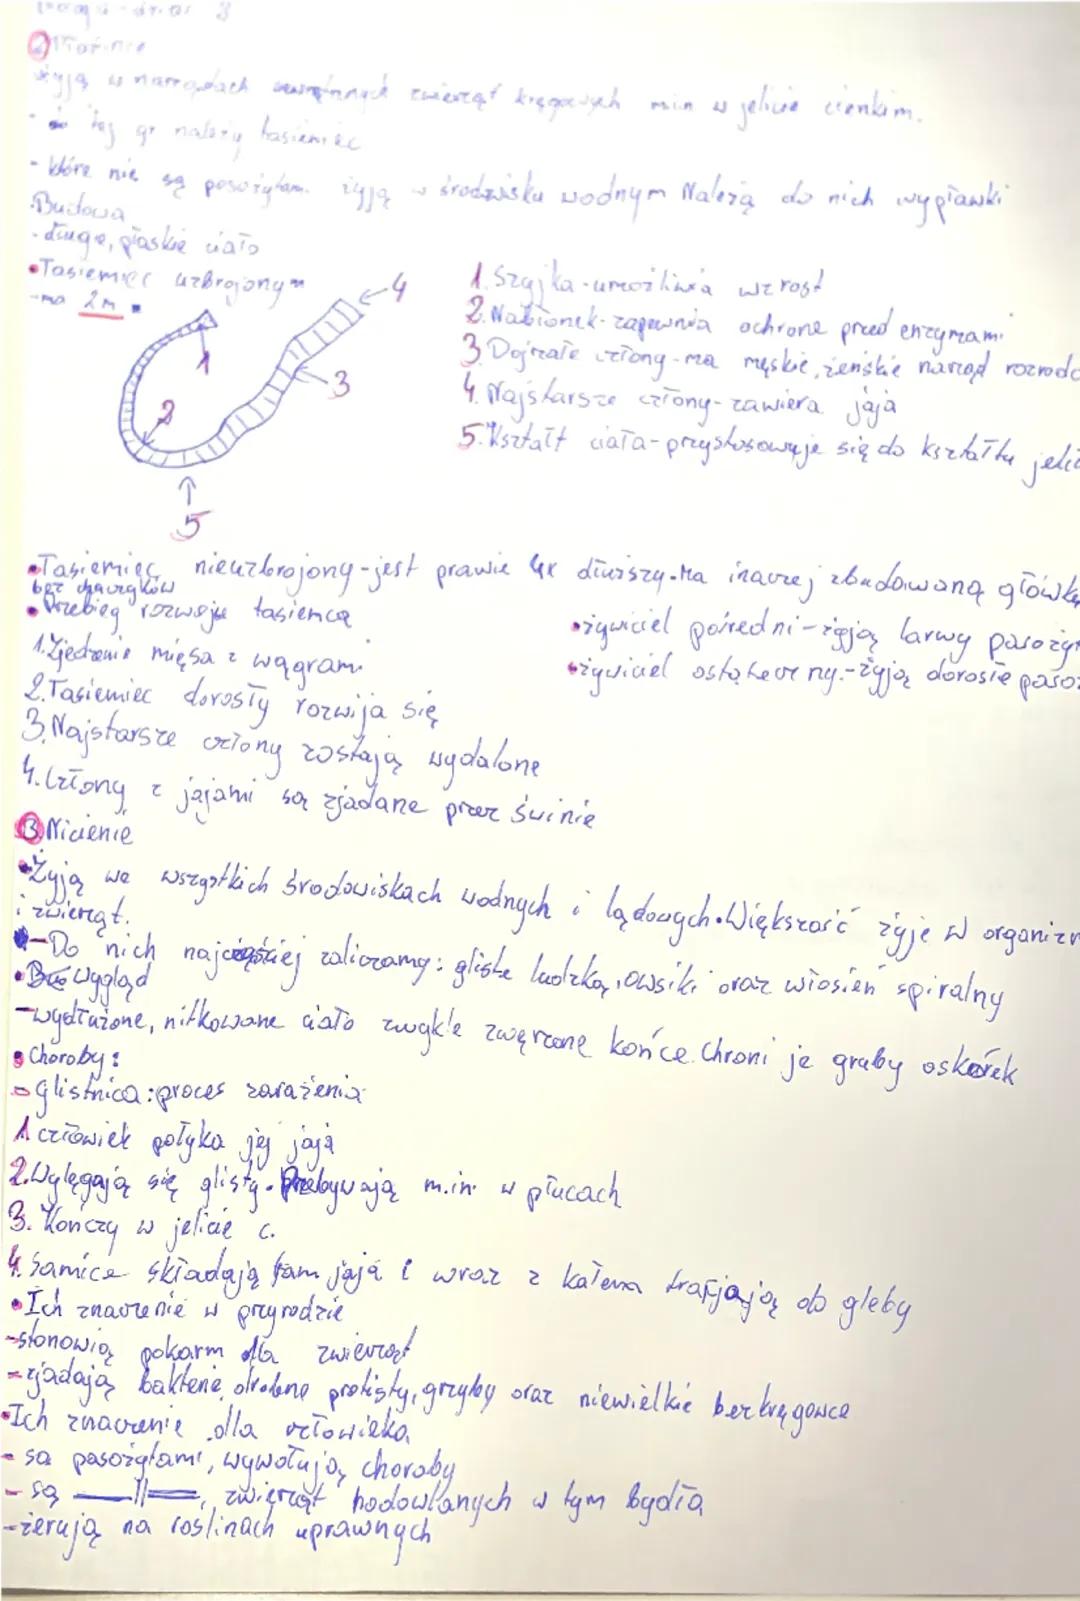 ② Płazińce
żyją w narządach wewnętrznych zwierząt kręgowych min w jelicie cienkim.
- do tej gr należy tasiemiec
- które nie są pasożytam. żyją w środowisku wodnym Należą do nich wypławki
Budowa
- długe, płaskie ciało
•Tasiemiec uzbrojony
-ma 2m
4
1
3
2
5
1. Szyjka - umożliwia wzrost
2. Nabłonek - zapewnia ochrone przed enzymami
3 Dojrzałe człony - ma męskie, żeńskie narząd rozrodc
4. Najstarsze człony - zawiera jaja
5. Kształt ciała - przystosowuje się do kształtu jelit
•Tasiemiec nieuzbrojony - jest prawie 4x dłuższy. Ma inaczej zbudowaną główkę
bez haczyków
•Przebieg rozwoju tasiemca
1. Zjedzenie mięsa z wągrami
2. Tasiemiec dorosły rozwija się
3. Najstarsze człony zostają wydalone
4. Człony z jajami są zjadane przez świnie
•żywiciel pośredni - żyją larwy pasoży
•żywiciel ostateczny. - żyją dorosłe paso
③ Nicienie
•Żyją we wszystkich środowiskach wodnych i lądowych. Większość żyje w organizm
i zwierząt.
- Do nich najczęściej zaliczamy: gliste ludzką, owsiki oraz włosień spiralny
• Wygląd
- wydłużone, nitkowane ciało zwykle zwężone końce. Chroni je gruby oskórek
• Choroby:
- glistnica: proces zarażenia
1 człowiek połyka jej jaja
2. Wylęgają się glisty. Przebywają m.in. w płucach
3. Kończy w jelicie c.
4. Samice składają tam jaja i wraz z kałem trafjają do gleby
• Ich znaczenie w przyrodzie
- stonowią pokarm dla zwierząt
- zjadają bakterie, drobne protisty, grzyby oraz niewielkie bezkręgowce
•Ich znaczenie dla człowieka
- są pasożytami, wywołują choroby
- są —||—, zwierząt hodowlanych w tym bydła
- żerują na roślinach uprawnych